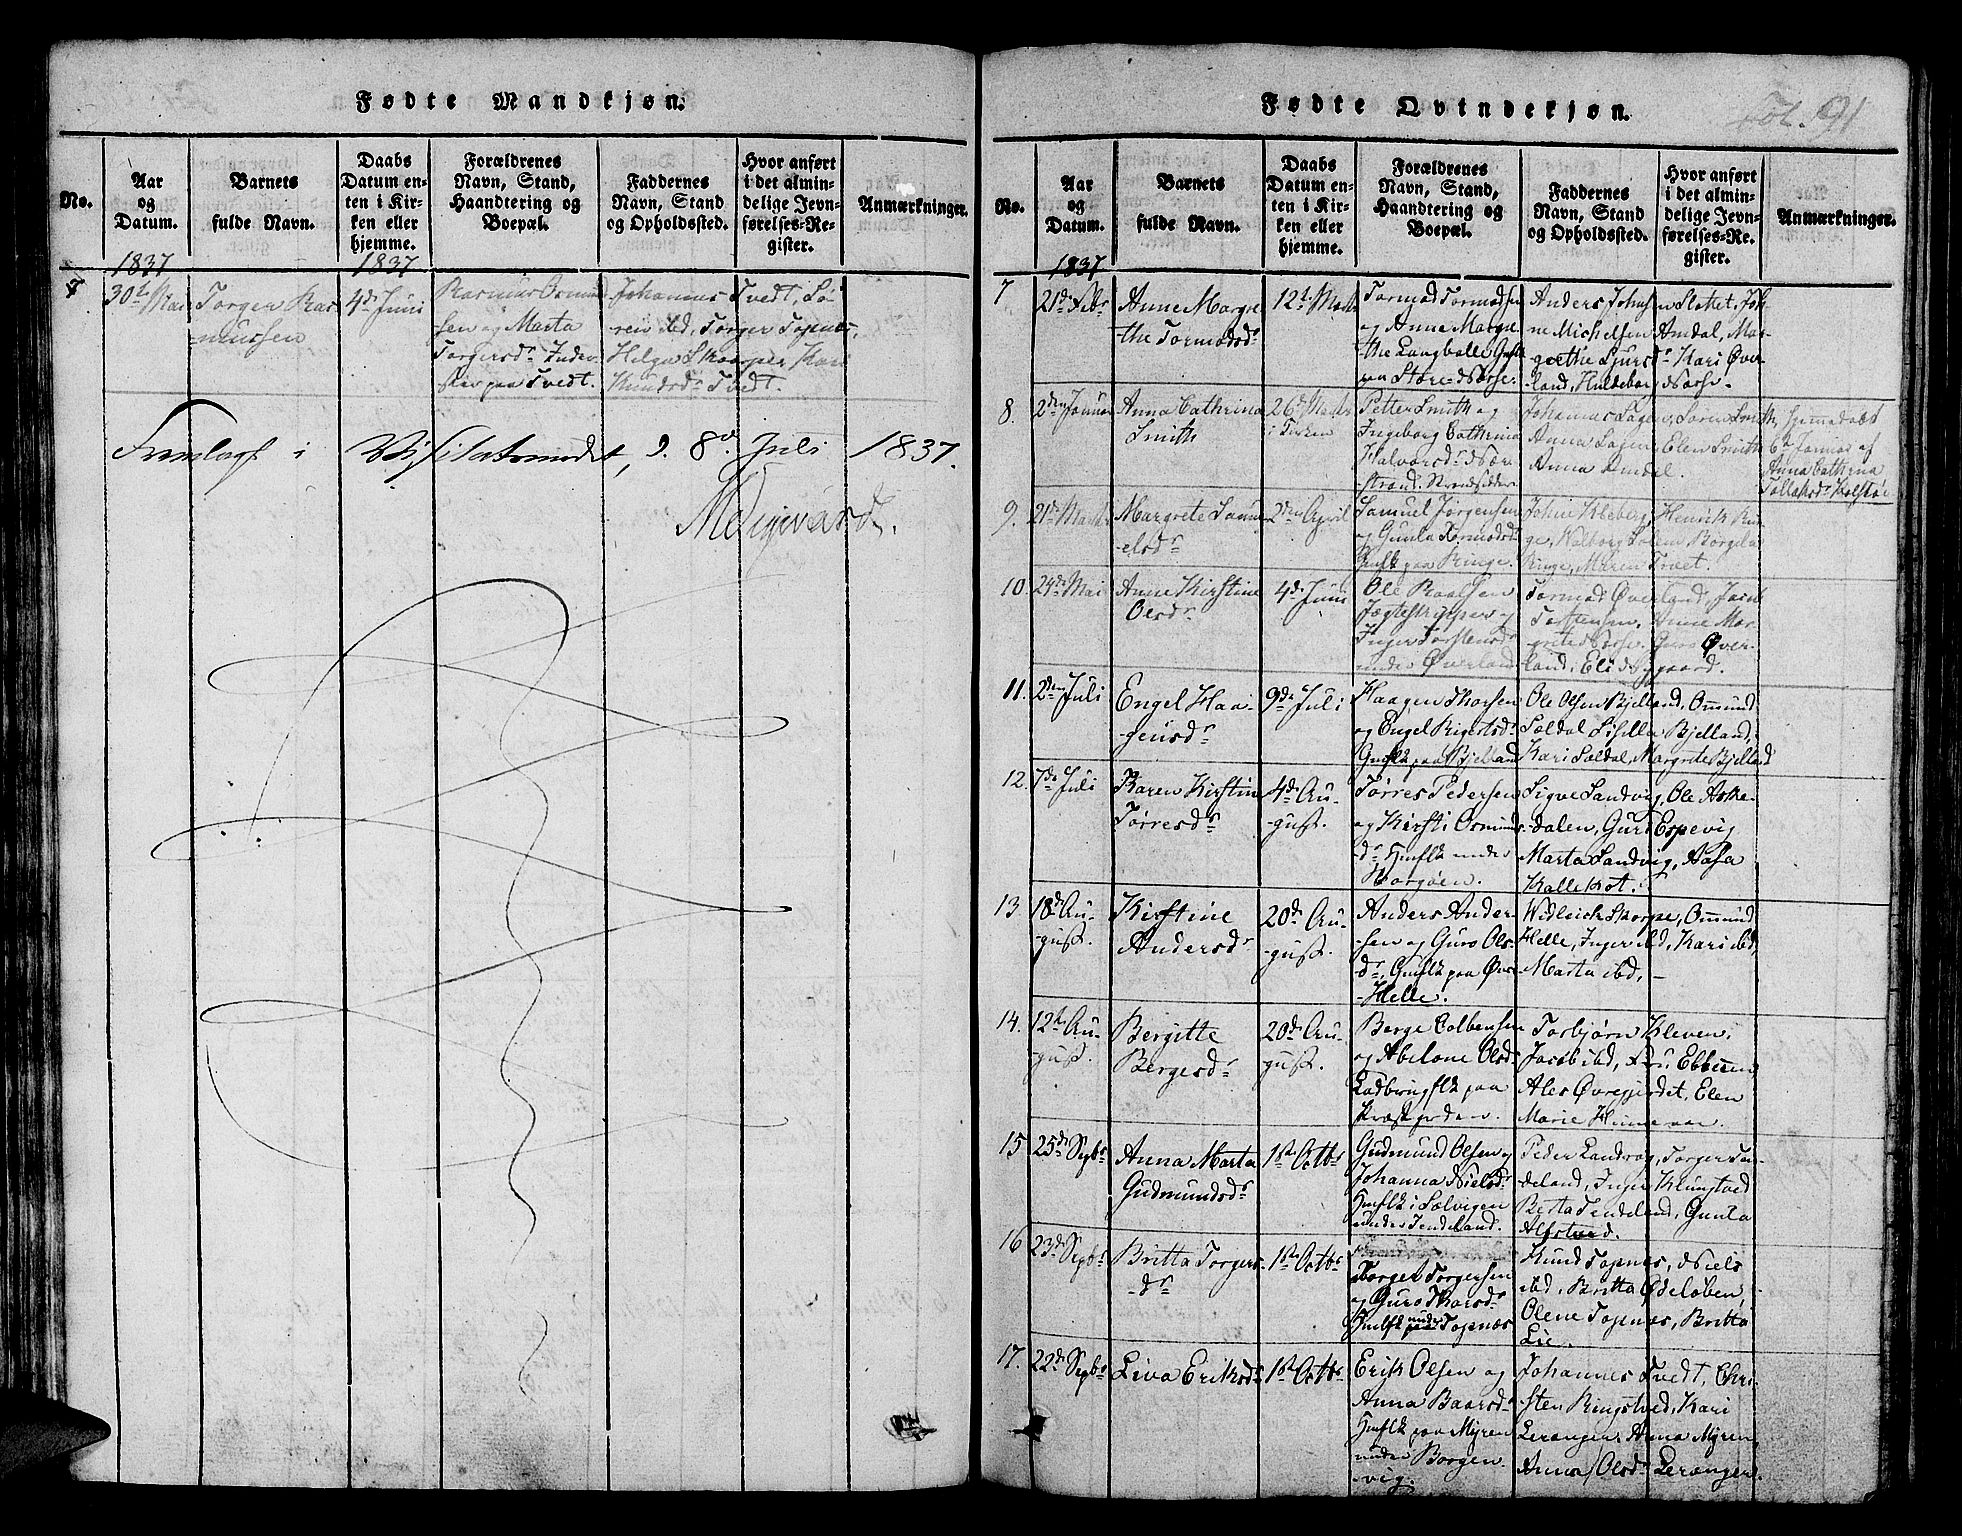 Fødte Mandkjøn.
No.
Aar
og
Datum.
Barnets
fulde Navn.
Daabs
Datum en-
ten i Kir-
ken eller
hjemme.
Forældrenes
Navn, Stand,
Haandtering og
Boepæl.
Faddernes
Navn, Stand
og Opholdssted.
Hvor anført
i det almin-
delige Jevn-
førelses-Re-
gister.
Anmærkninger.
1837
1837
7
30te Mai
Torger Ras
mussen
4de Juni
Rasmus Osmund
sen og Marta
Torgersdr
paa Tvedt.
Johannes Tvedt, Sø-
ren ibd, Torger Topnæs,
Helga Skaarpe, Kari
Knudsdr Tvedt.
Fremlagt i Visitatsmødet, d. 8de Juli 1837.
Fødte Qvindekjøn.
Fol. 91
No.
Aar
og
Datum.
Barnets
fulde Navn.
Daabs
Datum en-
ten i Kir-
ken eller
hjemme.
Forældrenes
Navn, Stand,
Haandtering og
Boepæl.
Faddernes
Navn, Stand
og Opholdssted.
Hvor anført
i det almin-
delige Jevn-
førelses-Re-
gister.
Anmærkninger.
1837
7
21de Febr
Anne Margre
the Tormodsdr
12te Marts
Tormod Tormodsen
og Anne Margre
the Langballe Gmflk
paa Store-Norse.
Anders Johnsen Slottet, Joh
ne Michelsen Amdal, Mar-
grethe Sjursdr Kari Øver-
land, Huldebor Norse.
8.
2den Januar
Anna Cathrina
Smith
26de Marts
i Kirken
Petter Smith og
Ingeborg Cathrina
Halvorsdr Nær-
strand. Strandsidder
Johannes Sagen, Søren Smith,
Anna Sagen Elen Smith
Anna Amdal.
Hjemmedøbt
6te Januar af
Anna Cathrina
Tollaksdr Kolstøe
9.
21de Marts
Margrete Samu
elsdr
2den April
Samuel Jørgensen
og Gunla Tormodsdr
Gmflk paa Ringe.
John Kleberg, Henrik Rin
ge, Walborg Borgila
Ringe, Maren Tvedt.
10.
24de Mai
Anne Kirstine
Olsdr
4de Juni
Ole Roalsen
Jægteskipper og
Inger Torstensdr
under Øverland
Tormod Øverland, Jacob
Torstensen, Anne Mar-
grete Norse, Guro Øver-
land, Eli Nygaard.
11.
2den Juli
Engel Haa-
gensdr
9de Juli
Haagen Thorsen
og Engel Sigertsdr
Gmflk paa Bjelland
Ole Olsen Bjelland, Omund
Soldal Sisella Bjelland,
Kari Soldal, Margrete Bjelland
12.
7de Juli
Karen Kirstine
Tørresdr
4de Au-
gust.
Tørres Pedersen
og Kirsti Osmunds-
dr Hmflk under
Borgøen.
Sigve Sandvig, Ole Aske-
dalen, Guri Espevig
Marta Sandvig, Aasa
Kallekot.
13
18de Au-
gust.
Kirstine
Andersdr
20de Au-
gust.
Anders Ander-
sen og Guro Ols-
dr, Gmflk paa Øvre
Helle.
Widleich Skorpe, Omund
Helle, Inger ibd, Kari ibd,
Marta ibd,
14.
12te Au-
gust.
Bergitte
Bergesdr
20de Au-
gust.
Berge Colbensen
og Abelone Olsd-
paa
Torbjørn Kleven,
Jacob ibd, Ebbesen
Ales Øvregjerdet, Elen
Marie Hinneraa.
15
25de Septbr
Anna Marta
Gudmundsdr
1ste Octbr
Gudmund Olsen og
Johanna Nielsdr
Hmflk i Solvigen
under Tendeland.
Peder Landvog, Torger Ten-
deland, Inger Klungtved
Berta Tendeland, Gunla
Alfstved.
16
23de Septbr
Britta Torgers-
dr
1ste Octbr
Torger Torgersen
og Guro Thorsdr
Hmflk under Topnæs
Knud Topnes, Niels
ibd, Britta Ødeløben,
Olene Topnæs, Britta
Lie.
17.
22de Septbr
Liva Eriksdr
1ste Octbr
Erik Olsen og
Anna Baarsdr
Hmflk paa Myren
under Borgen-
vig.
Johannes Tvedt, Chri-
sten Ringstved, Kari
Leranger, Anna Myren,
Anna Olsdr Leranger.